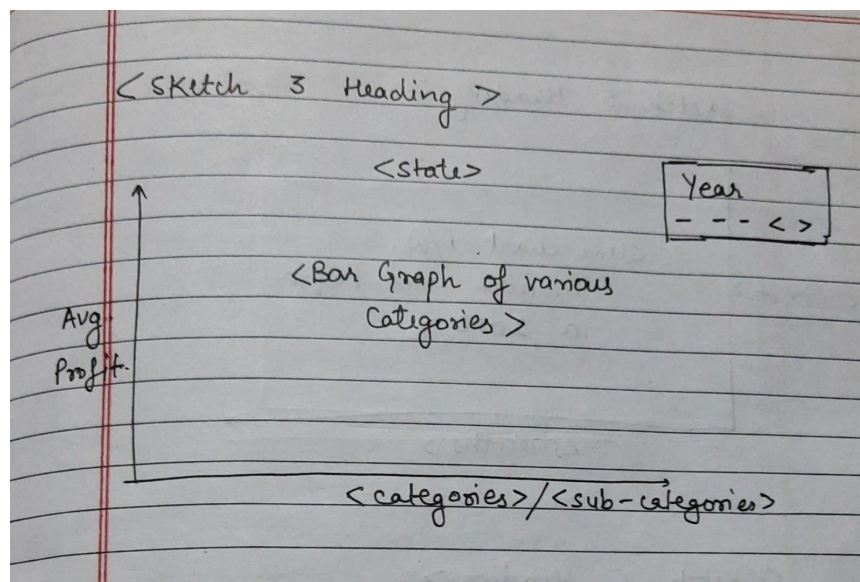 <Sketch 3 Heading>
<State>
Year
- - - < >
<Bar Graph of various
Categories>
Avg
Profit.
<categories>/<sub-categories>